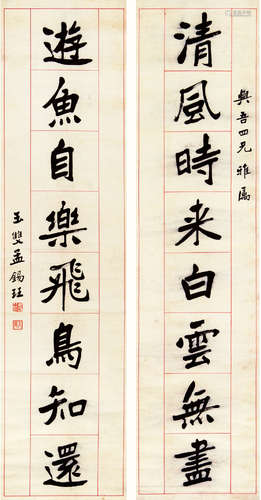 與吾四兄雅屬
清風時来白雲無盡
遊魚自樂飛鳥知還
玉雙孟錫珏